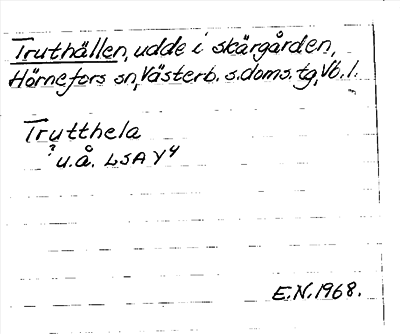 Truthällen, udde i skärgården,
Hörnefors sn, Västerb. s. doms. tg, Vb. l.
Trutthela
? u.å. LSA Y4
E.N. 1968.